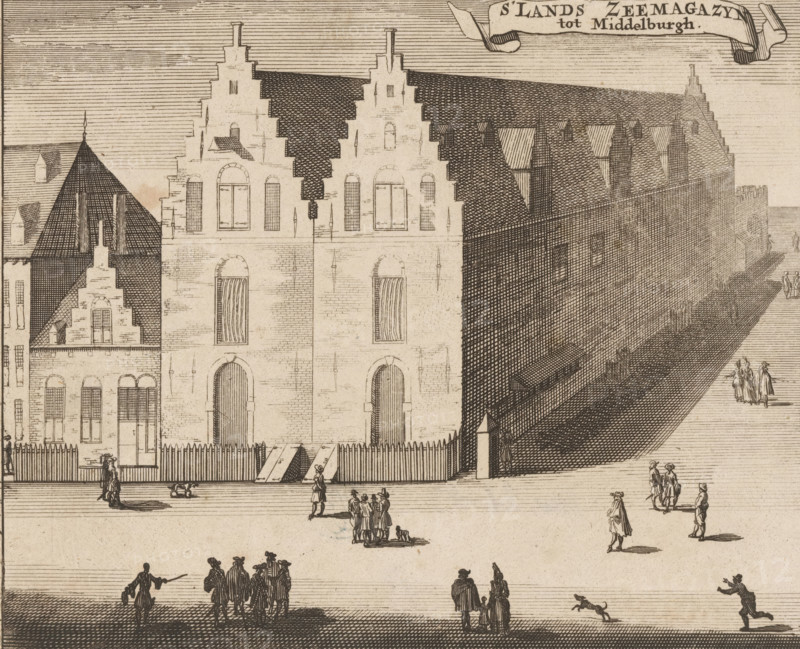 S'LANDS ZEEMAGAZYN
tot Middelburgh.